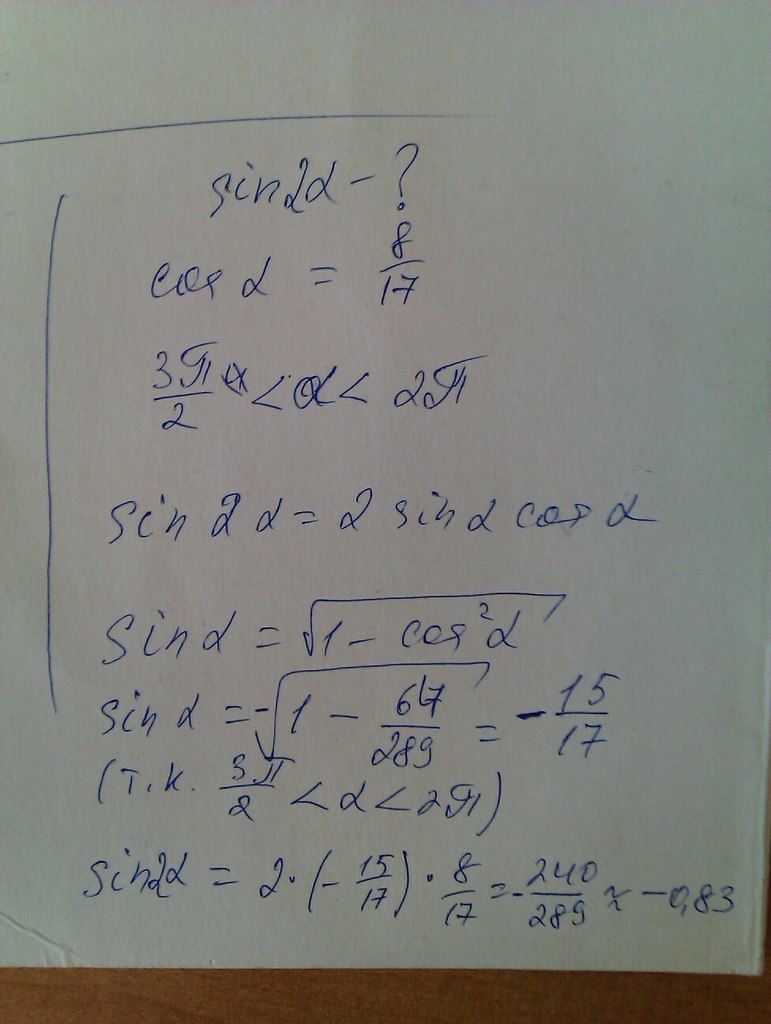 sin2α - ?
cos α = 8/17
3π/2 < α < 2π
sin 2α = 2 sin α cos α
sin α = √(1 - cos²α)
sin α = -√(1 - 64/289) = -15/17
(т.к. 3π/2 < α < 2π)
sin2α = 2·(-15/17)·8/17 = -240/289 ≈ -0,83